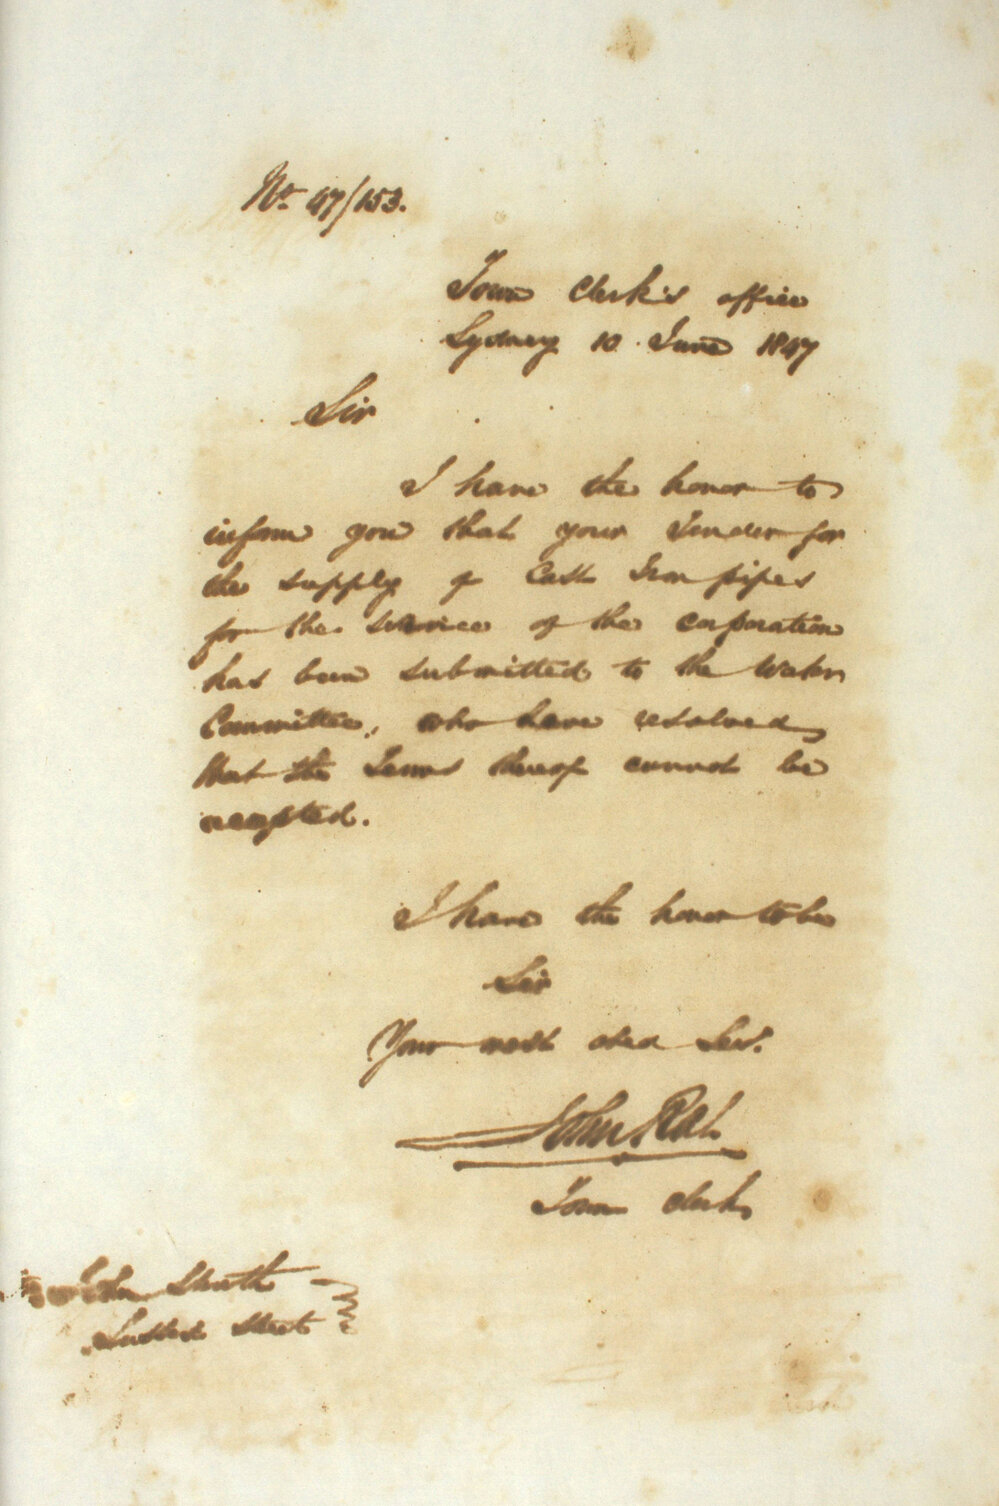 No. 47/153.
Town Clerk's office
Sydney 10 June 1847
Sir
I have the honor to
inform you that your Tender for
the supply of Cast Iron pipes
for the service of the corporation
has been submitted to the Water
Committee, who have resolved
that the Terms thereof cannot be
accepted.
I have the honor to be
Sir
Your most obed Ser.
John Rae
Town Clerk
John Struth
Sussex Street